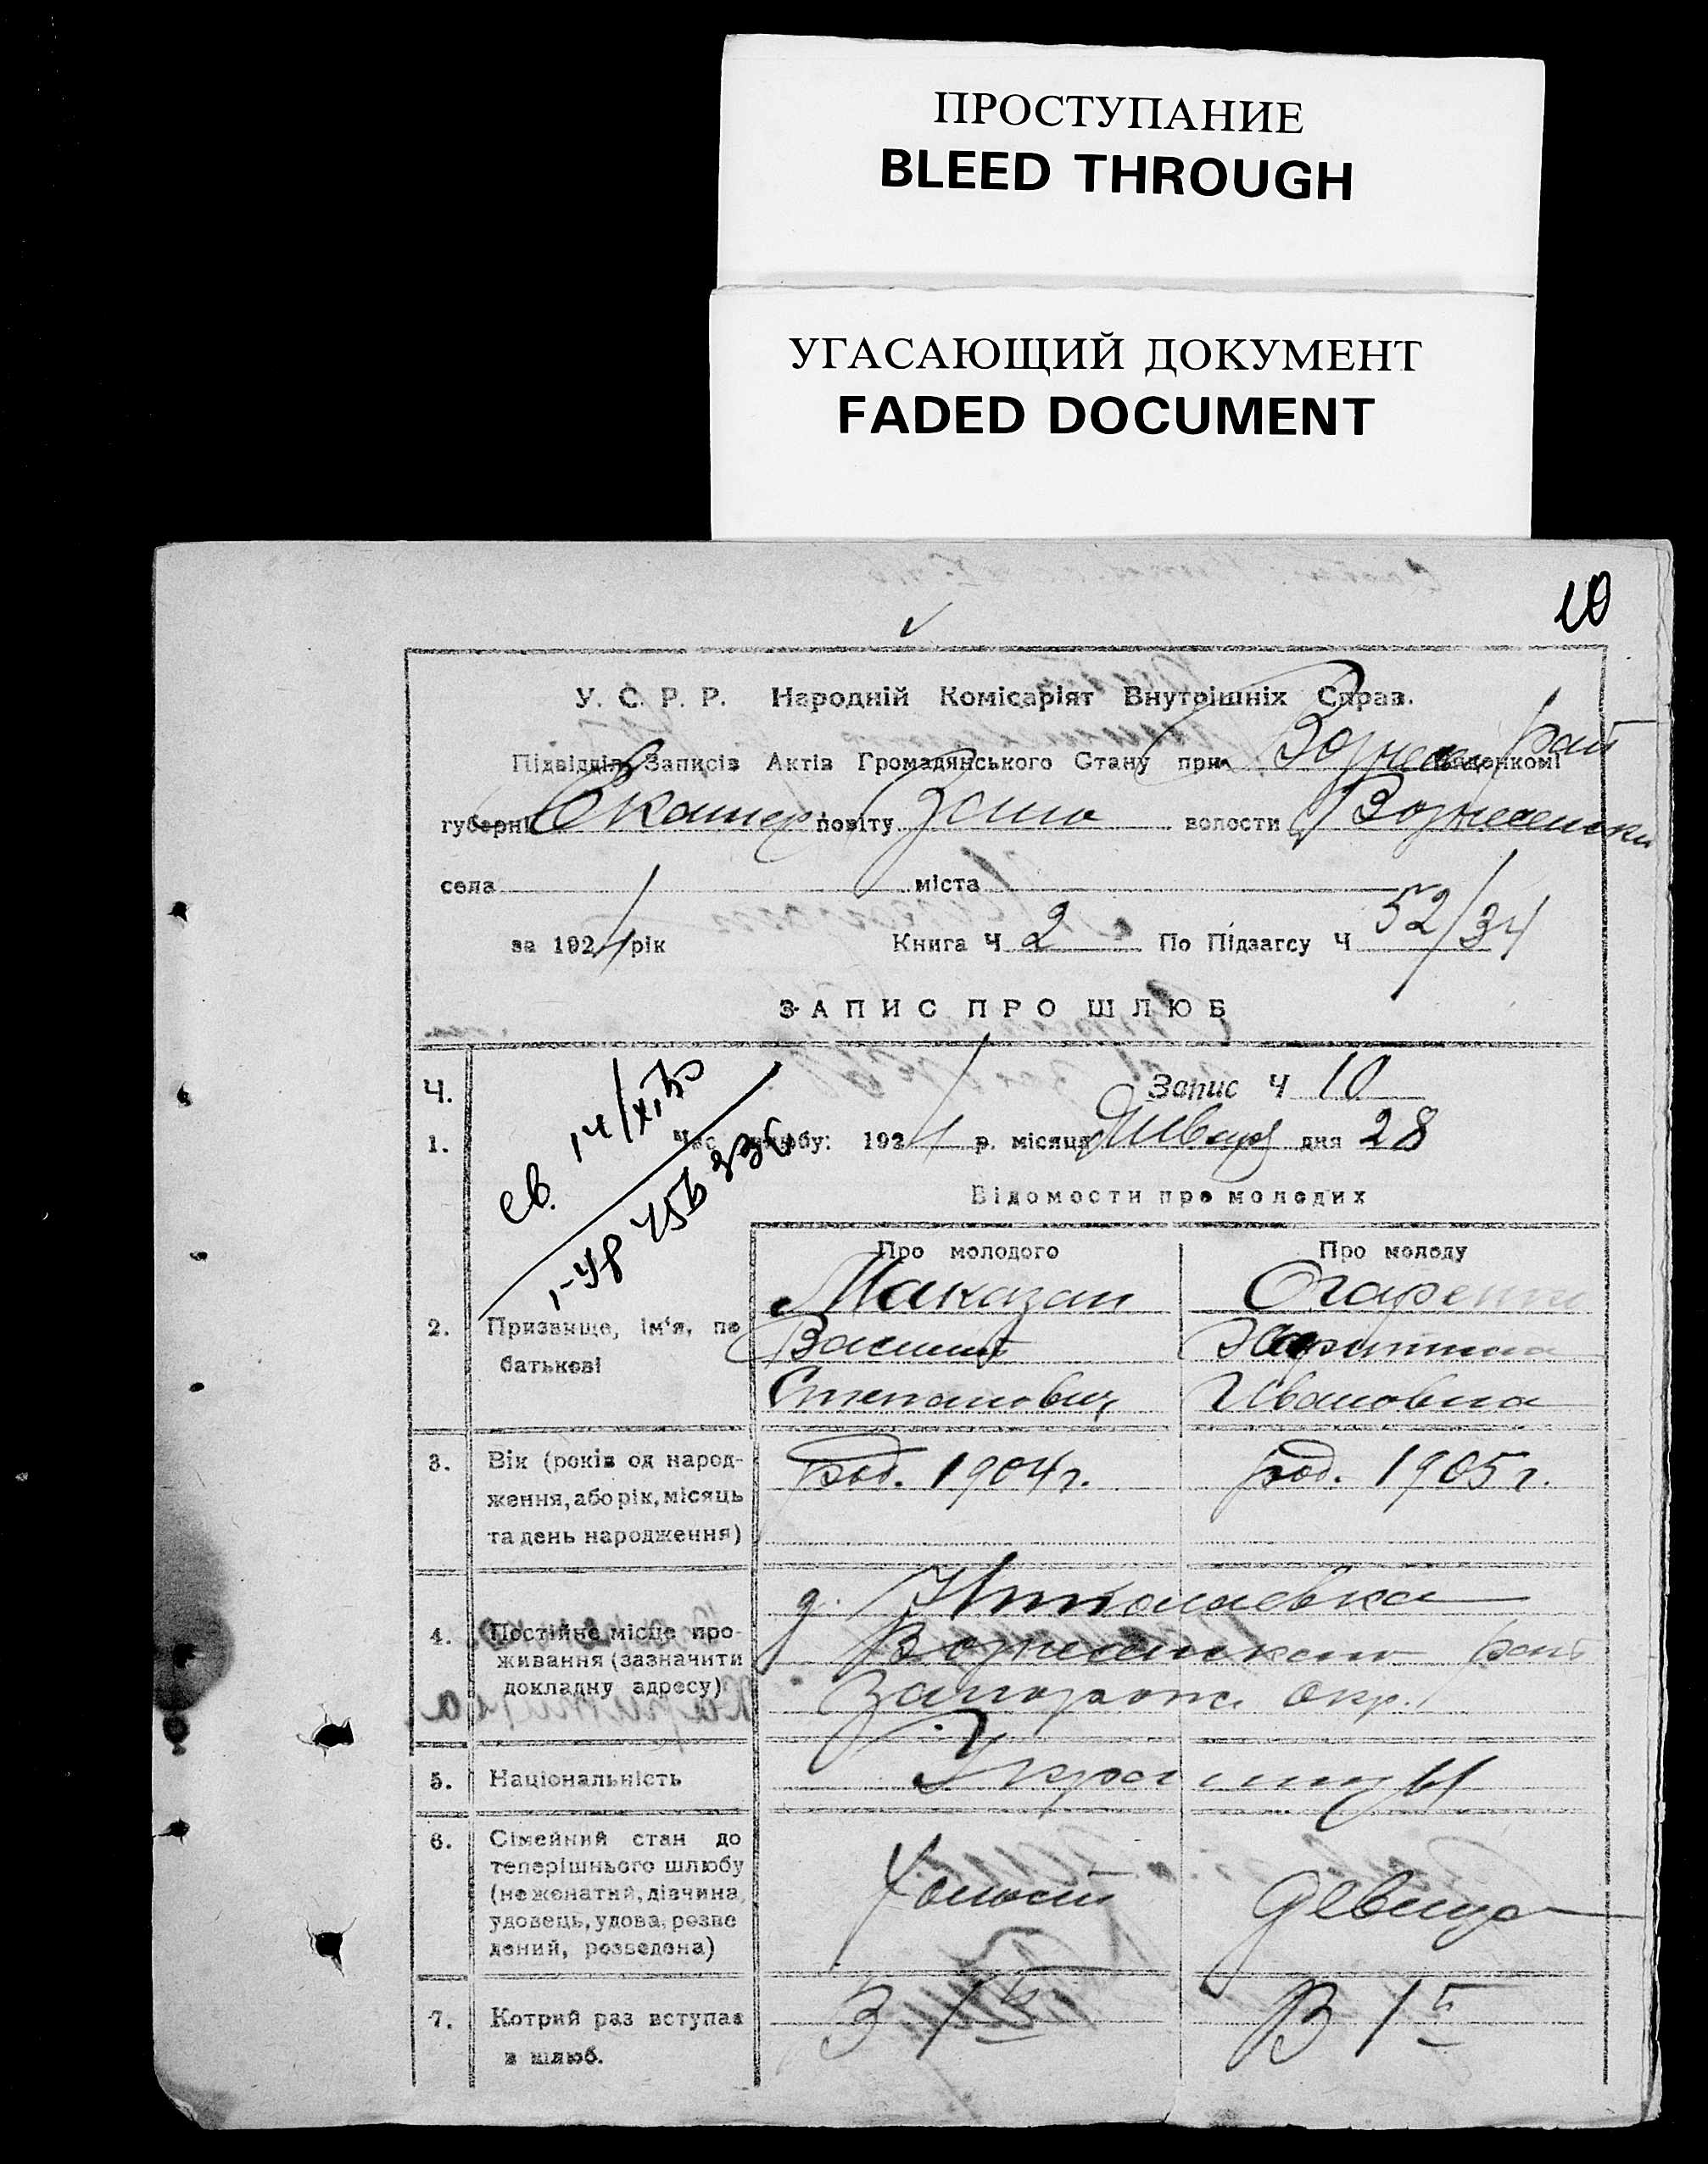 ПРОСТУПАНИЕ
BLEED THROUGH
УГАСАЮЩИЙ ДОКУМЕНТ
FADED DOCUMENT
10
У. С. Р. Р. Народній Комісаріят Внутрішніх Справ.
Підвідділ Записів Актів Громадянського Стану при
губерні Екатер повіту Запо волости Вознесенски
села міста
за 1924 рік Книга Ч 2 По Підзагсу Ч 52/34
ЗАПИС ПРО ШЛЮБ
Ч. Запис Ч 10
1. Час шлюбу: 192 р. місяця Январ дня 28
св.
Відомости про молодих
Про молодого Про молоду
2. Призвище, ім'я, по батькові
Маказан
Василий
Степанович
Огаренко
Харитина
Ивановна
3. Вік (років од народ-
ження, або рік, місяць
та день народження)
род. 1904 г. род. 1905 г.
4. Постійне місце про-
живання (зазначити
докладну адресу)
д. Николаевка
Вознесенского рай
Запорож. окр.
5. Національність Украинцы
6. Сімейний стан до
теперішнього шлюбу
(не женатий, дівчина,
удовець, удова, розве
дений, розведена)
Холост девица
7. Котрий раз вступає
в шлюб.
В 1й В 1й